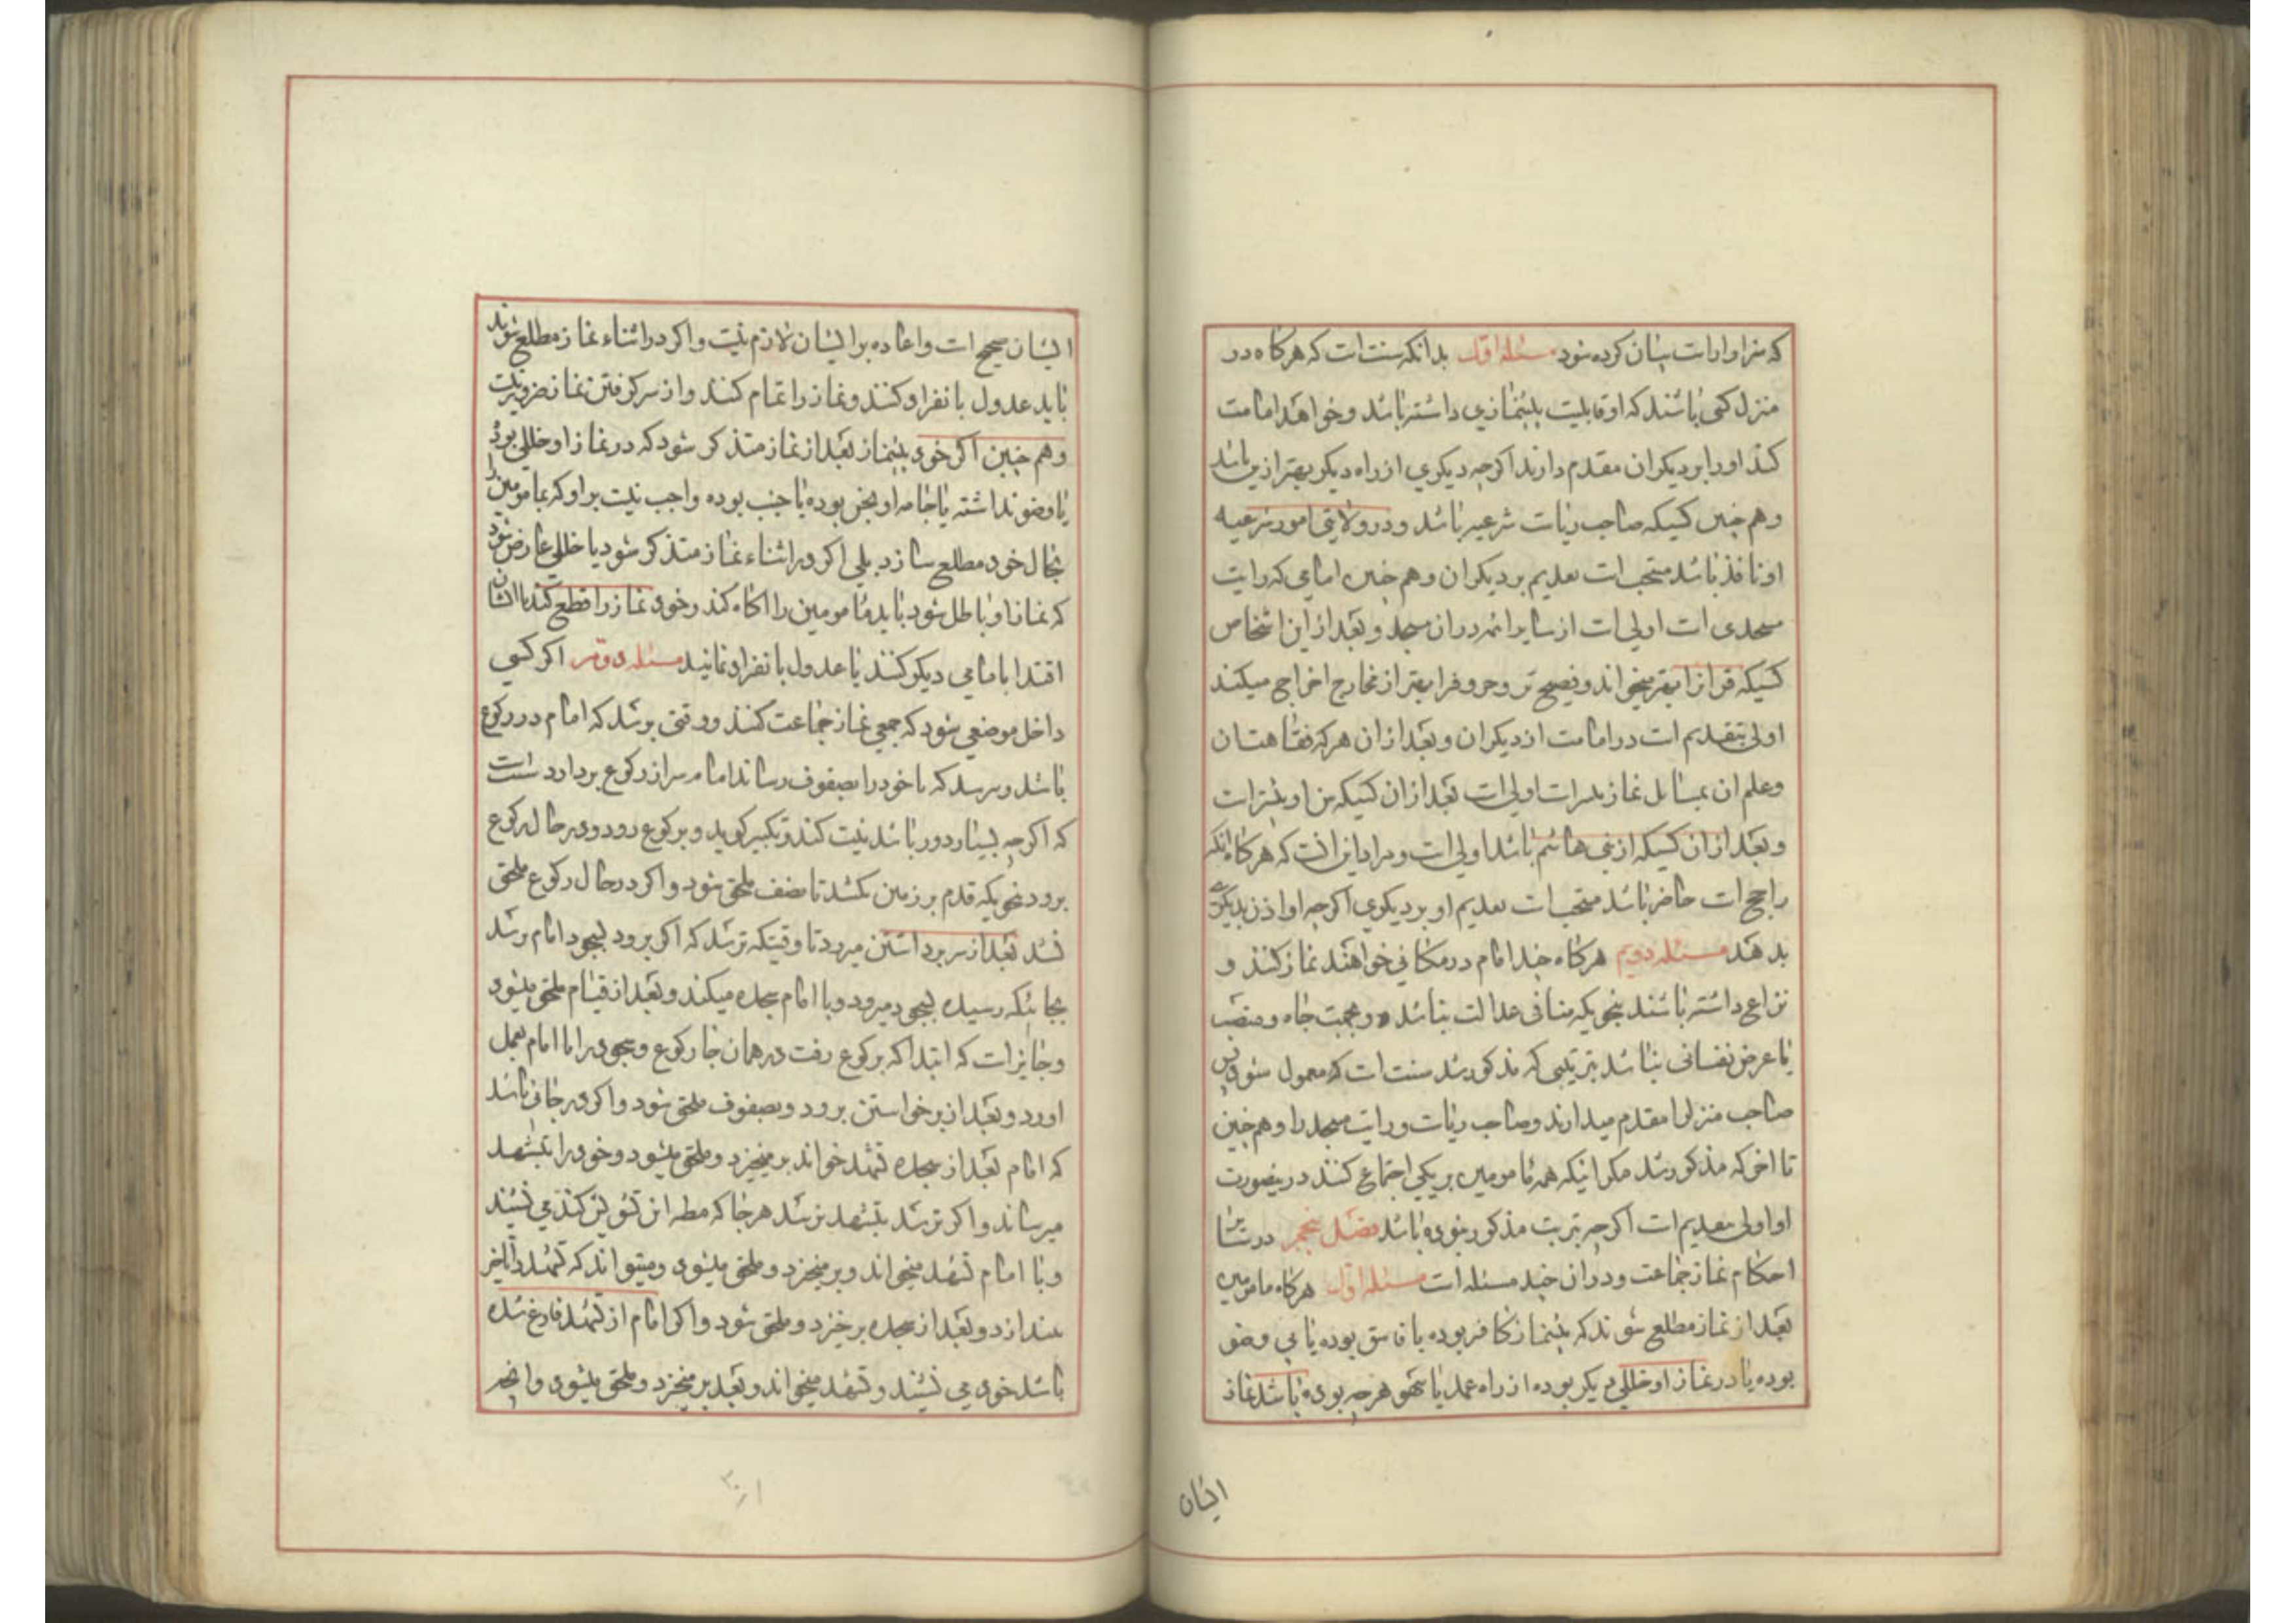 که سزاوار است بیان کرده شود مسئله اول بدانکه سنت است که هرکاه در
منزل کسی باشند که او قابلیت پیشنمازی داشته باشد و خواهد امامت
کند او را بر دیکران مقدم دارند اکرچه دیکری از راه دیکر بهتر ازین باشد
و هم چنین کسیکه صاحب ریاست شرعیه باشد و در ولایتی امور شرعیه
او نافذ باشد مستحب است تقدیم بر دیکران و هم چنین امامی که راتب
مسجدی است اولی است از سایر ائمه در ان مسجد و بعد از این اشخاص
کسیکه قرانرا بهتر میخواند و فصیح تر و حروفرا بهتر از مخارج اخراج میکند
اولی بتقدیم است در امامت از دیکران و بعد از ان هرکه فقاهتان
و علم ان بمسائل نماز بیشتر است اولی است بعد از ان کسیکه سن او بیشتر است
و بعد از ان کسیکه از بنی هاشم باشد اولی است و مراد این است که هرکاه انکه
راجح است حاضر باشد مستحب است تقدیم او بر دیکری اکرچه او اذن بدیکری
بدهد مسئله دویم هرکاه چند امام در مکانی خواهند نماز کنند و
نزاع داشته باشند بنحویکه منافی عدالت نباشد و محبت جاه و منصب
یا غرض نفسانی نباشد بترتیبی که مذکور شد سنت است که معمول شود پس
صاحب منزلرا مقدم میدارند و صاحب ریاست و راتب مسجد را و هم چنین
تا اخر که مذکور شد مکر اینکه همه مامومین بر یکی اجتماع کنند درینصورت
او اولی بتقدیم است اکرچه بترتیب مذکور نبوده باشد فصل پنجم در سایر
احکام نماز جماعت و در ان چند مسئله است مسئله اول هرکاه مامومین
بعد از نماز مطلع شوند که پیشنماز کافر بوده یا فاسق بوده یا بی وضو
بوده یا در نماز او خللی دیکر بوده از راه عمد یا سهو هرچه بوده باشد نماز
ایشان
ایشان صحیح است و اعاده بر ایشان لازم نیست و اکر در اثناء نماز مطلع شوند
باید عدول بانفراد کنند و نماز را تمام کنند و از سر کرفتن نماز ضرور نیست
و هم چنین اکر خود پیشنماز بعد از نماز متذکر شود که در نماز او خللی بود
یا وضو نداشته یا جامه او نجس بوده یا جنب بوده واجب نیست بر او که مامومین را
بحال خود مطلع سازد بلی اکر در اثناء نماز متذکر شود یا خللی عارض شود
که نماز او باطل شود باید مامومین را اکاه کند و خود نماز را قطع کند تا ایشان
اقتدا بامامی دیکر کنند یا عدول بانفراد نمایند مسئله دویم اکر کسی
داخل موضعی شود که جمعی نماز جماعت کنند و وقتی برسد که امام در رکوع
باشد و ترسد که تا خود را بصفوف رساند امام سر از رکوع بردارد سنت است
که اکرچه بسیار دور باشد نیت کند و تکبیر کوید و برکوع رود و در حال رکوع
برود بنحویکه قدم بر زمین بکشد تا بصف ملحق شود و اکر در حال رکوع ملحق
نشد بعد از سر برداشتن میرود تا وقتیکه ترسد که اکر برود بسجود امام نرسد
بجائیکه رسیده بسجود میرود و با امام سجده میکند و بعد از قیام ملحق میشود
و جایز است که ابتدا که برکوع رفت در همان جا رکوع و سجود را با امام بعمل
اورد و بعد از برخواستن برود و بصفوف ملحق شود و اکر در جائی باشد
که امام بعد از سجده تشهد خواند بر میخیزد و ملحق میشود و خود را بتشهد
میرساند و اکر ترسد بتشهد نرسد هرجا که مظنه ان تشویش کند می نشیند
و با امام تشهد میخواند و بر میخیزد و ملحق میشود و میتواند که تشهد را تاخیر
بیندازد و بعد از سجده برخیزد و ملحق شود و اکر امام از تشهد فارغ شده
باشد خود می نشیند و تشهد میخواند و بعد بر میخیزد و ملحق میشود و انچه